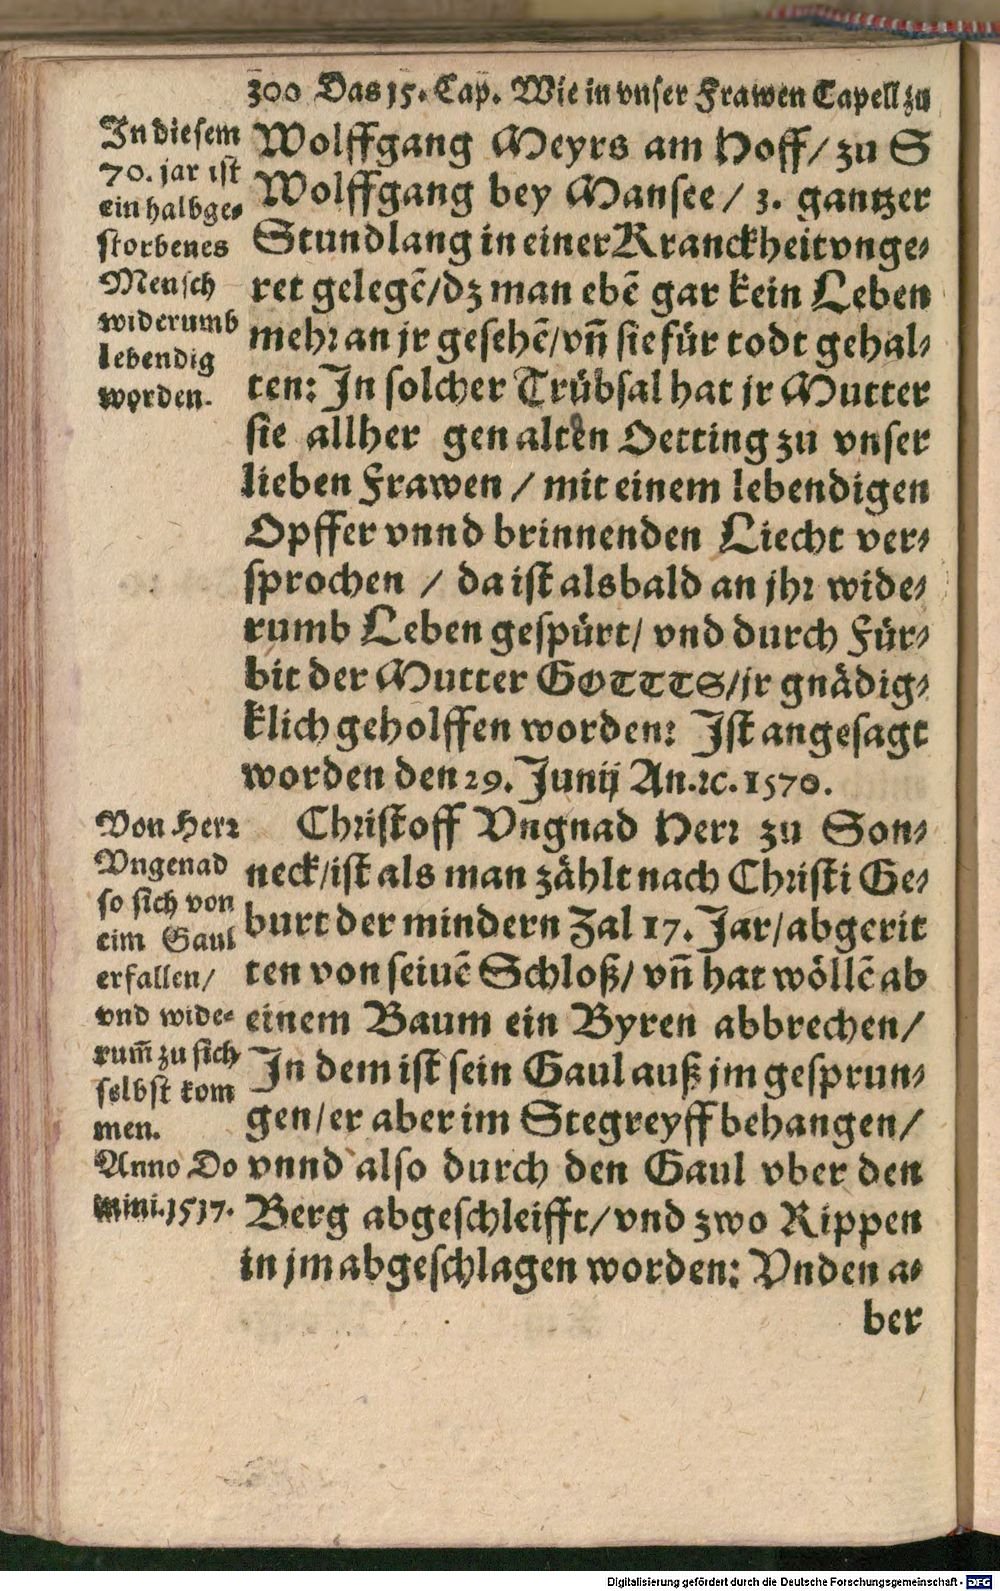 300 Das 15. Cap. Wie in vnser Frawen Capell zu
In diesem
70. jar ist
ein halbge⸗
storbenes
Mensch
widerumb
lebendig
worden.
Wolffgang Meyrs am Hoff/ zu S
Wolffgang bey Mansee / 3. gantzer
Stundlang in einer Kranckheit vnge⸗
ret gelegē/dz man ebē gar kein Leben
mehr an jr gesehē/vñ sie für todt gehal⸗
ten: In solcher Trübsal hat jr Mutter
sie allher gen alten Oetting zu vnser
lieben Frawen / mit einem lebendigen
Opffer vnnd brinnenden Liecht ver⸗
sprochen / da ist alsbald an jhr wide⸗
rumb Leben gespürt/ vnd durch Für⸗
bit der Mutter GOTTTS/jr gnädig⸗
klich geholffen worden: Ist angesagt
worden den 29. Junij An.ꝛc. 1570.
Von Herr
Vngenad
so sich von
eim Gaul
erfallen/
vnd wide⸗
rum̃ zu sich
selbst kom
men.
Anno Do
mini.1517.
Christoff Vngnad Herr zu Son⸗
neck/ist als man zählt nach Christi Ge⸗
burt der mindern Zal 17. Jar/abgerit
ten von seiuē Schloß/ vñ hat wöllē ab
einem Baum ein Byren abbrechen/
In dem ist sein Gaul auß jm gesprun⸗
gen/er aber im Stegreyff behangen/
vnnd also durch den Gaul vber den
Berg abgeschleifft/vnd zwo Rippen
in jm abgeschlagen worden: Vnden a⸗
ber
Digitalisierung gefördert durch die Deutsche Forschungsgemeinschaft - DFG